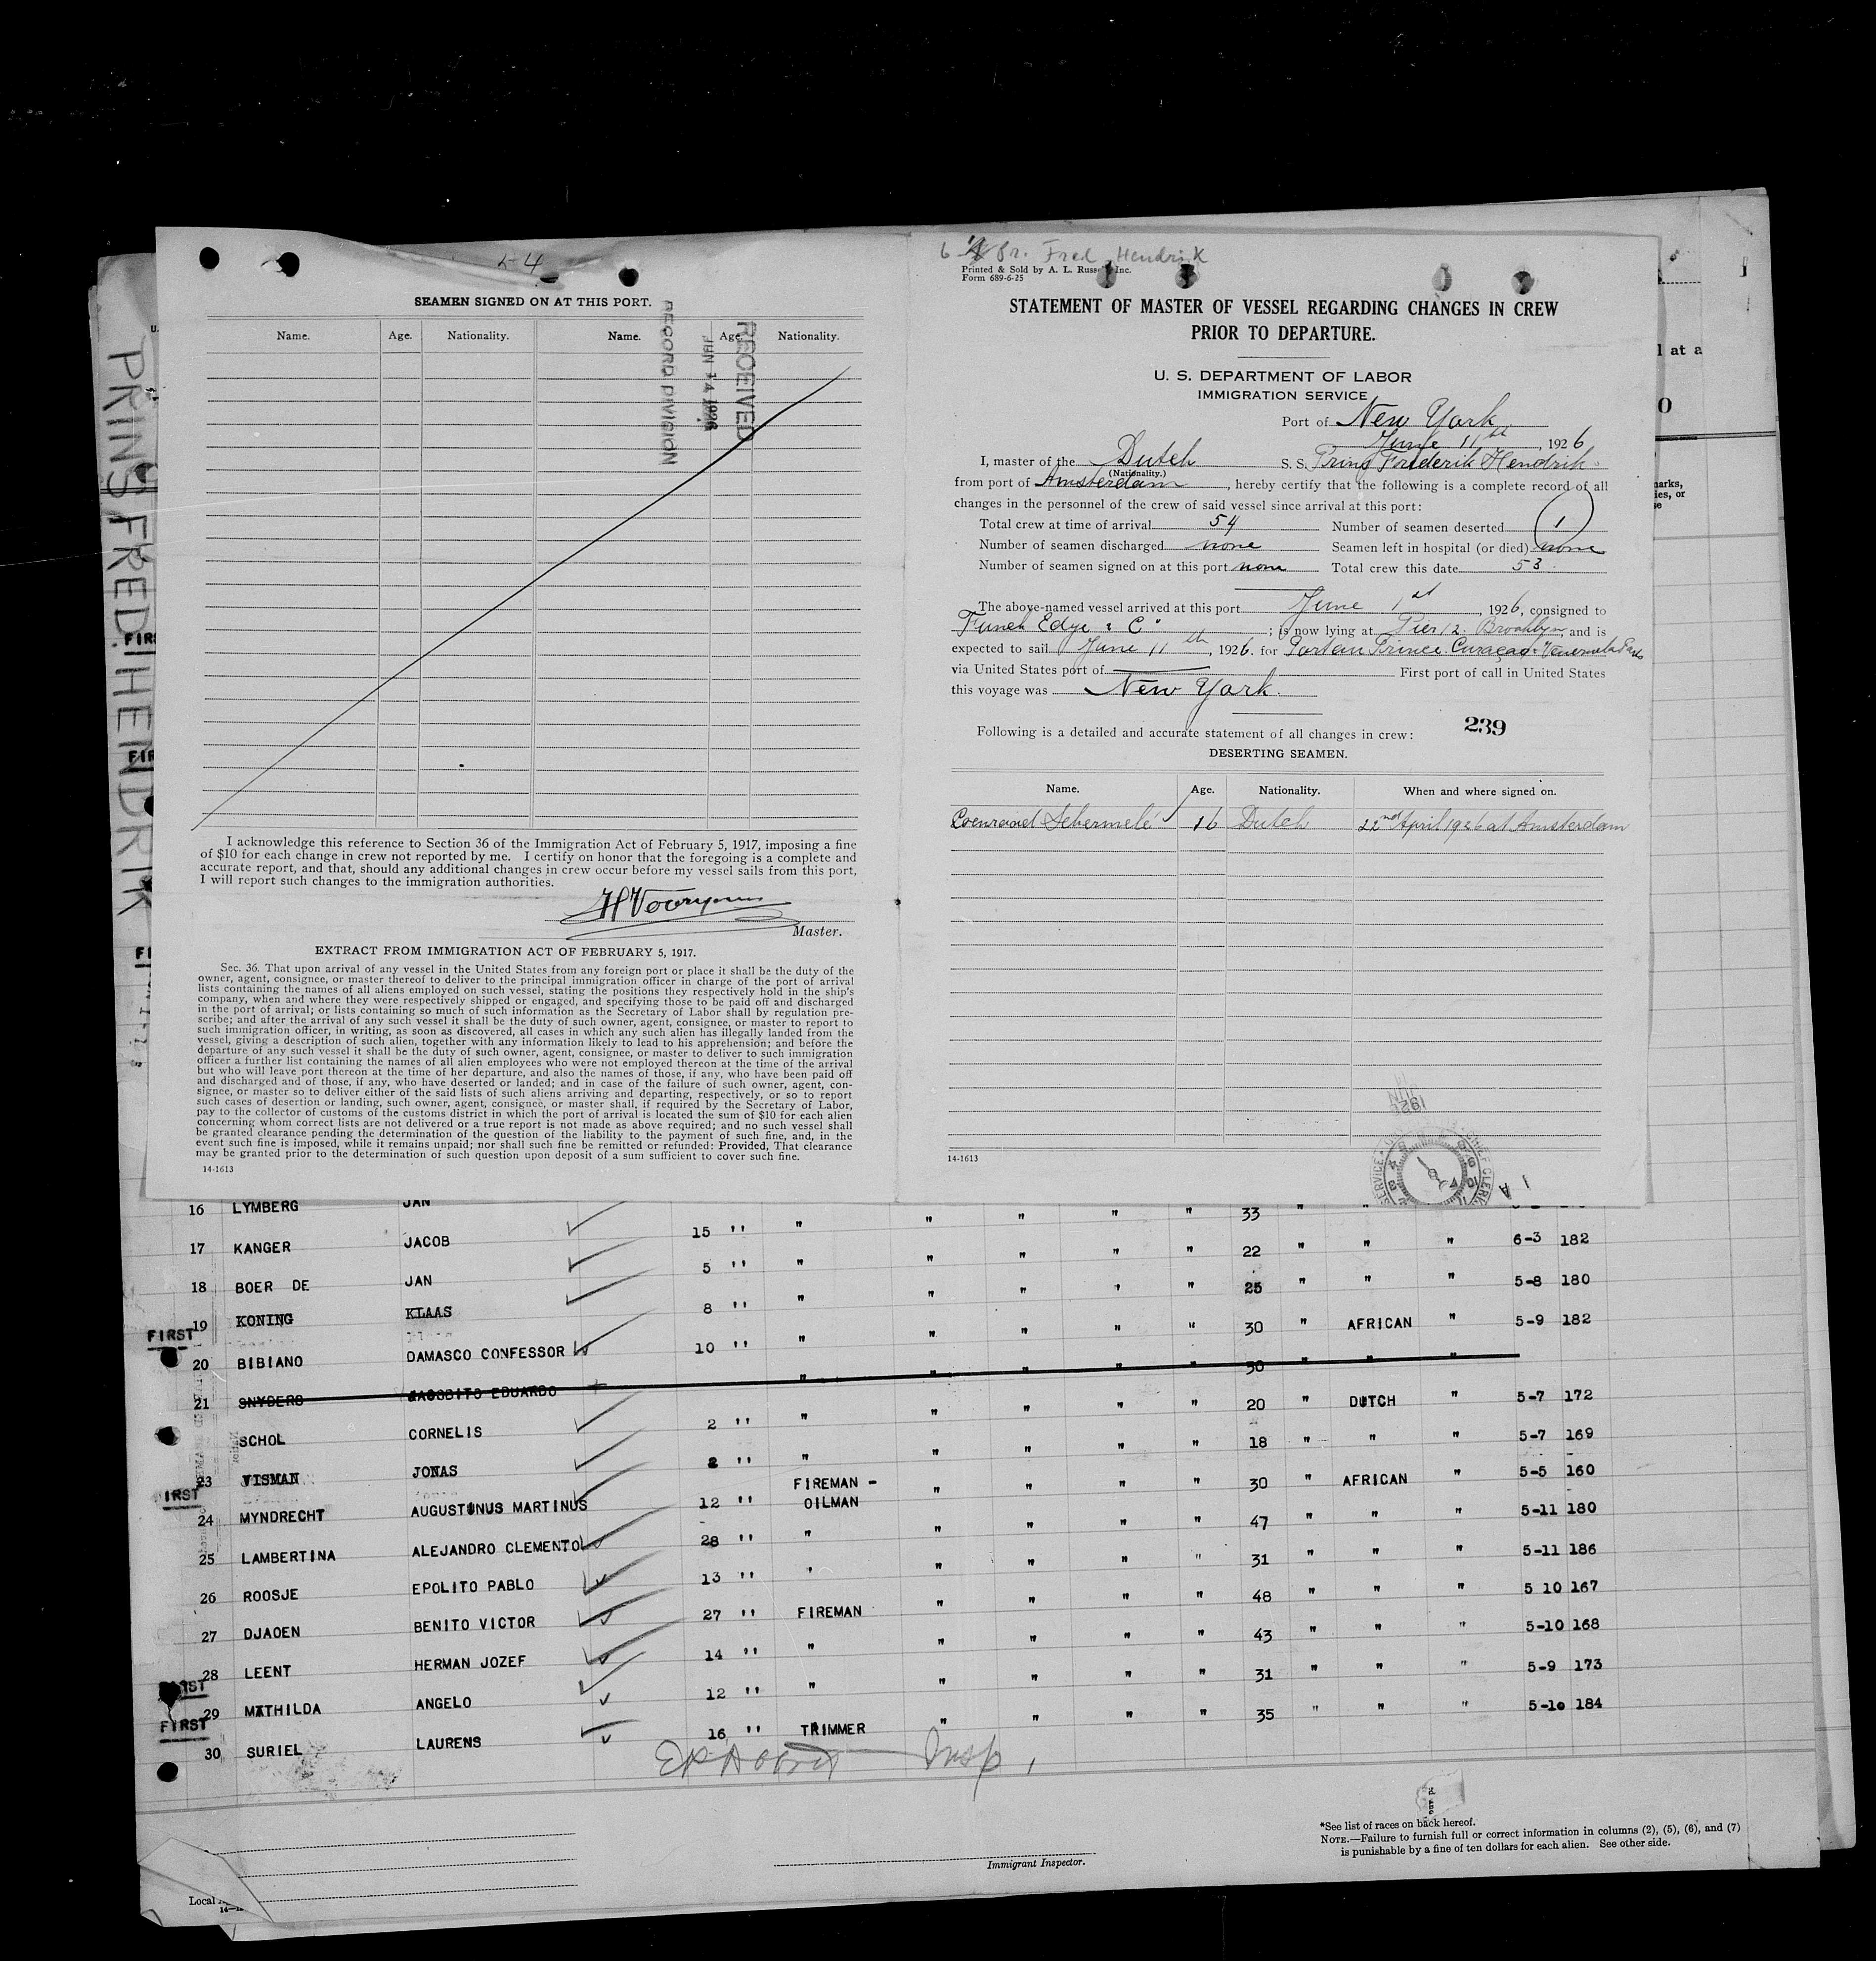 PRINS FRED. HENDRIK
54
SEAMEN SIGNED ON AT THIS PORT.
Name. Age. Nationality. Name. Age. Nationality.
RECEIVED
RECORD DIVISION
I acknowledge this reference to Section 36 of the Immigration Act of February 5, 1917, imposing a fine
of $10 for each change in crew not reported by me. I certify on honor that the foregoing is a complete and
accurate report, and that, should any additional changes in crew occur before my vessel sails from this port,
I will report such changes to the immigration authorities.
Master.
EXTRACT FROM IMMIGRATION ACT OF FEBRUARY 5, 1917.
Sec. 36. That upon arrival of any vessel in the United States from any foreign port or place it shall be the duty of the
owner, agent, consignee, or master thereof to deliver to the principal immigration officer in charge of the port of arrival
lists containing the names of all aliens employed on such vessel, stating the positions they respectively hold in the ship's
company, when and where they were respectively shipped or engaged, and specifying those to be paid off and discharged
in the port of arrival; or lists containing so much of such information as the Secretary of Labor shall by regulation pre-
scribe; and after the arrival of any such vessel it shall be the duty of such owner, agent, consignee, or master to report to
such immigration officer, in writing, as soon as discovered, all cases in which any such alien has illegally landed from the
vessel, giving a description of such alien, together with any information likely to lead to his apprehension; and before the
departure of any such vessel it shall be the duty of such owner, agent, consignee, or master to deliver to such immigration
officer a further list containing the names of all alien employees who were not employed thereon at the time of the arrival
but who will leave port thereon at the time of her departure, and also the names of those, if any, who have been paid off
and discharged and of those, if any, who have deserted or landed; and in case of the failure of such owner, agent, con-
signee, or master so to deliver either of the said lists of such aliens arriving and departing, respectively, or so to report
such cases of desertion or landing, such owner, agent, consignee, or master shall, if required by the Secretary of Labor,
pay to the collector of customs of the customs district in which the port of arrival is located the sum of $10 for each alien
concerning whom correct lists are not delivered or a true report is not made as above required; and no such vessel shall
be granted clearance pending the determination of the question of the liability to the payment of such fine, and, in the
event such fine is imposed, while it remains unpaid; nor shall such fine be remitted or refunded: Provided, That clearance
may be granted prior to the determination of such question upon deposit of a sum sufficient to cover such fine.
14-1613
Pr. Fred Hendrik
Printed & Sold by A. L. Russell Inc.
Form 689-6-25
STATEMENT OF MASTER OF VESSEL REGARDING CHANGES IN CREW
PRIOR TO DEPARTURE.
U. S. DEPARTMENT OF LABOR
IMMIGRATION SERVICE
Port of New York
June 11th, 1926
I, master of the Dutch S. S. Prins Frederik Hendrik
(Nationality.)
from port of Amsterdam, hereby certify that the following is a complete record of all
changes in the personnel of the crew of said vessel since arrival at this port:
Total crew at time of arrival 54 Number of seamen deserted 1
Number of seamen discharged none Seamen left in hospital (or died) none
Number of seamen signed on at this port none Total crew this date 53
The above-named vessel arrived at this port June 1st, 1926, consigned to
Funch Edye & Co; is now lying at Pier 12 Brooklyn, and is
expected to sail June 11th, 1926. for Port au Prince Curaçao
via United States port of First port of call in United States
this voyage was New York.
239
Following is a detailed and accurate statement of all changes in crew:
DESERTING SEAMEN.
Name. Age. Nationality. When and where signed on.
Coenraad Schermelé 16 Dutch 22nd April 1926 at Amsterdam
14-1613
16 LYMBERG JAN 15 '' " " " " " 33 " "
17 KANGER JACOB 5 '' " " " " " 22 " " " 6-3 182
18 BOER DE JAN 8 '' " " " " " 25 " " " 5-8 180
FIRST 19 KONING KLAAS 10 '' " " " " " 30 " AFRICAN " 5-9 182
20 BIBIANO DAMASCO CONFESSOR
21 SNYDERS JACOBITO EDUARDO " " " " " 30 " " "
SCHOL CORNELIS 2 '' " " " " " 20 " DUTCH " 5-7 172
23 VISMAN JONAS 2 '' " " " " " 18 " " " 5-7 169
24 MYNDRECHT AUGUSTUNUS MARTINUS 12 '' FIREMAN - OILMAN " " " " 30 " AFRICAN " 5-5 160
25 LAMBERTINA ALEJANDRO CLEMENTO 28 '' " " " " " 47 " " " 5-11 180
26 ROOSJE EPOLITO PABLO 13 '' " " " " " 31 " " " 5-11 186
27 DJAOEN BENITO VICTOR 27 '' FIREMAN " " " " 48 " " " 5 10 167
28 LEENT HERMAN JOZEF 14 '' " " " " " 43 " " " 5-10 168
29 MATHILDA ANGELO 12 '' " " " " " 31 " " " 5-9 173
FIRST 30 SURIEL LAURENS 16 '' TRIMMER " " " " 35 " " " 5-10 184
Insp.
Immigrant Inspector.
*See list of races on back hereof.
NOTE.—Failure to furnish full or correct information in columns (2), (5), (6), and (7)
is punishable by a fine of ten dollars for each alien. See other side.
Local